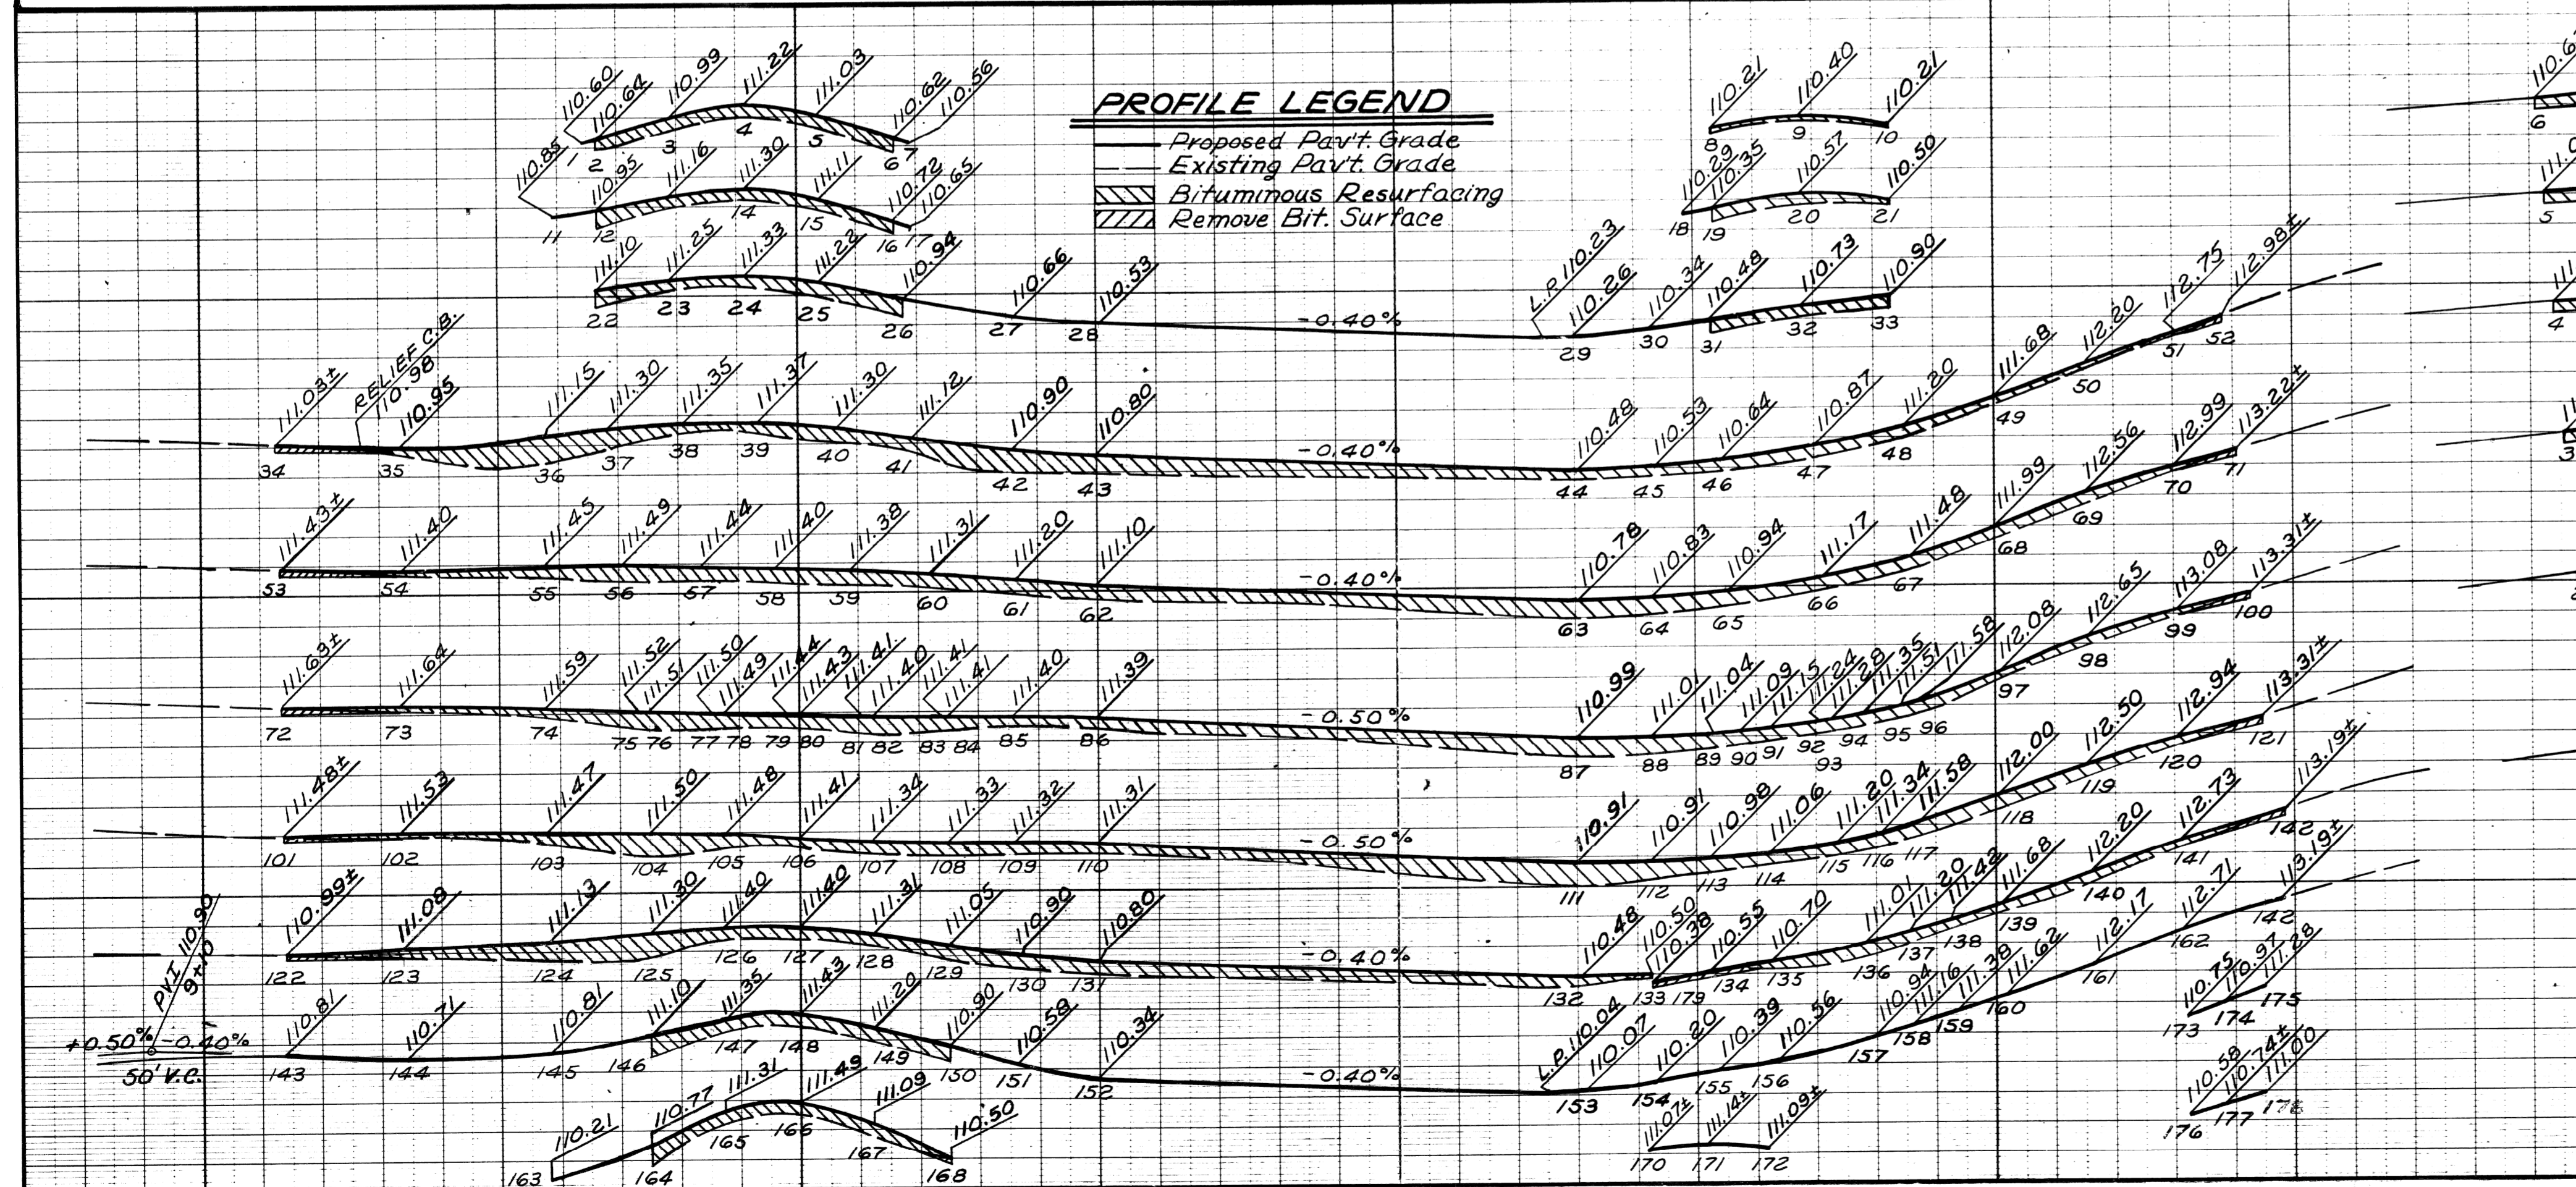 110.60 110.64 110.99 111.22 111.03 110.62 110.56
1 2 3 4 5 6 7
PROFILE LEGEND
Proposed Pav't. Grade
Existing Pav't. Grade
Bituminous Resurfacing
Remove Bit. Surface
110.21 110.40 110.21
8 9 10
6
110.85 110.95 111.16 111.30 111.11 110.72 110.65
11 12 14 15 16 17
110.29 110.35 110.57 110.50
18 19 20 21
5
111.10 111.25 111.33 111.22 110.94 110.66 110.53 -0.40% L.P. 110.23 110.26 110.34 110.48 110.73 110.90
22 23 24 25 26 27 28 29 30 31 32 33
4
111.03± RELIEF C.B. 110.98 110.95 111.15 111.30 111.35 111.37 111.30 111.12 110.90 110.80 -0.40% 110.48 110.53 110.64 110.87 111.20 111.68 112.20 112.75 112.98±
34 35 36 37 38 39 40 41 42 43 44 45 46 47 48 49 50 51 52
3
111.43± 111.40 111.45 111.49 111.44 111.40 111.38 111.31 111.20 111.10 -0.40% 110.78 110.83 110.94 111.17 111.48 111.99 112.56 112.99 113.22±
53 54 55 56 57 58 59 60 61 62 63 64 65 66 67 68 69 70 71
111.63± 111.64 111.59 111.52 111.51 111.50 111.49 111.44 111.43 111.41 111.40 111.41 111.41 111.40 111.39 -0.50% 110.99 111.01 111.04 111.09 111.15 111.24 111.28 111.35 111.51 111.58 112.08 112.65 113.08 113.31±
72 73 74 75 76 77 78 79 80 81 82 83 84 85 86 87 88 89 90 91 92 93 94 95 96 97 98 99 100
111.48± 111.53 111.47 111.50 111.48 111.41 111.34 111.33 111.32 111.31 -0.50% 110.91 110.91 110.98 111.06 111.20 111.34 111.58 112.00 112.50 112.94 113.31±
101 102 103 104 105 106 107 108 109 110 111 112 113 114 115 116 117 118 119 120 121
110.99± 111.08 111.13 111.30 111.40 111.40 111.31 111.05 110.90 110.80 -0.40% 110.48 110.50 110.38 110.55 110.70 111.01 111.20 111.42 111.68 112.20 112.73 113.19±
122 123 124 125 126 127 128 129 130 131 132 133 179 134 135 136 137 138 139 140 141 142
PVI 110.90
9+10
+0.50% -0.40%
50' V.C.
110.81 110.71 110.81 111.10 111.35 111.43 111.20 110.90 110.58 110.34 -0.40% L.P. 110.04 110.07 110.20 110.39 110.56 110.94 111.16 111.38 111.62 112.17 112.71 113.19±
143 144 145 146 147 148 149 150 151 152 153 154 155 156 157 158 159 160 161 162 142
110.75 110.97 111.28
173 174 175
110.21 110.77 111.31 111.49 111.09 110.50
163 164 165 166 167 168
111.07± 111.14± 111.09±
170 171 172
110.58 110.74± 111.00
176 177 178